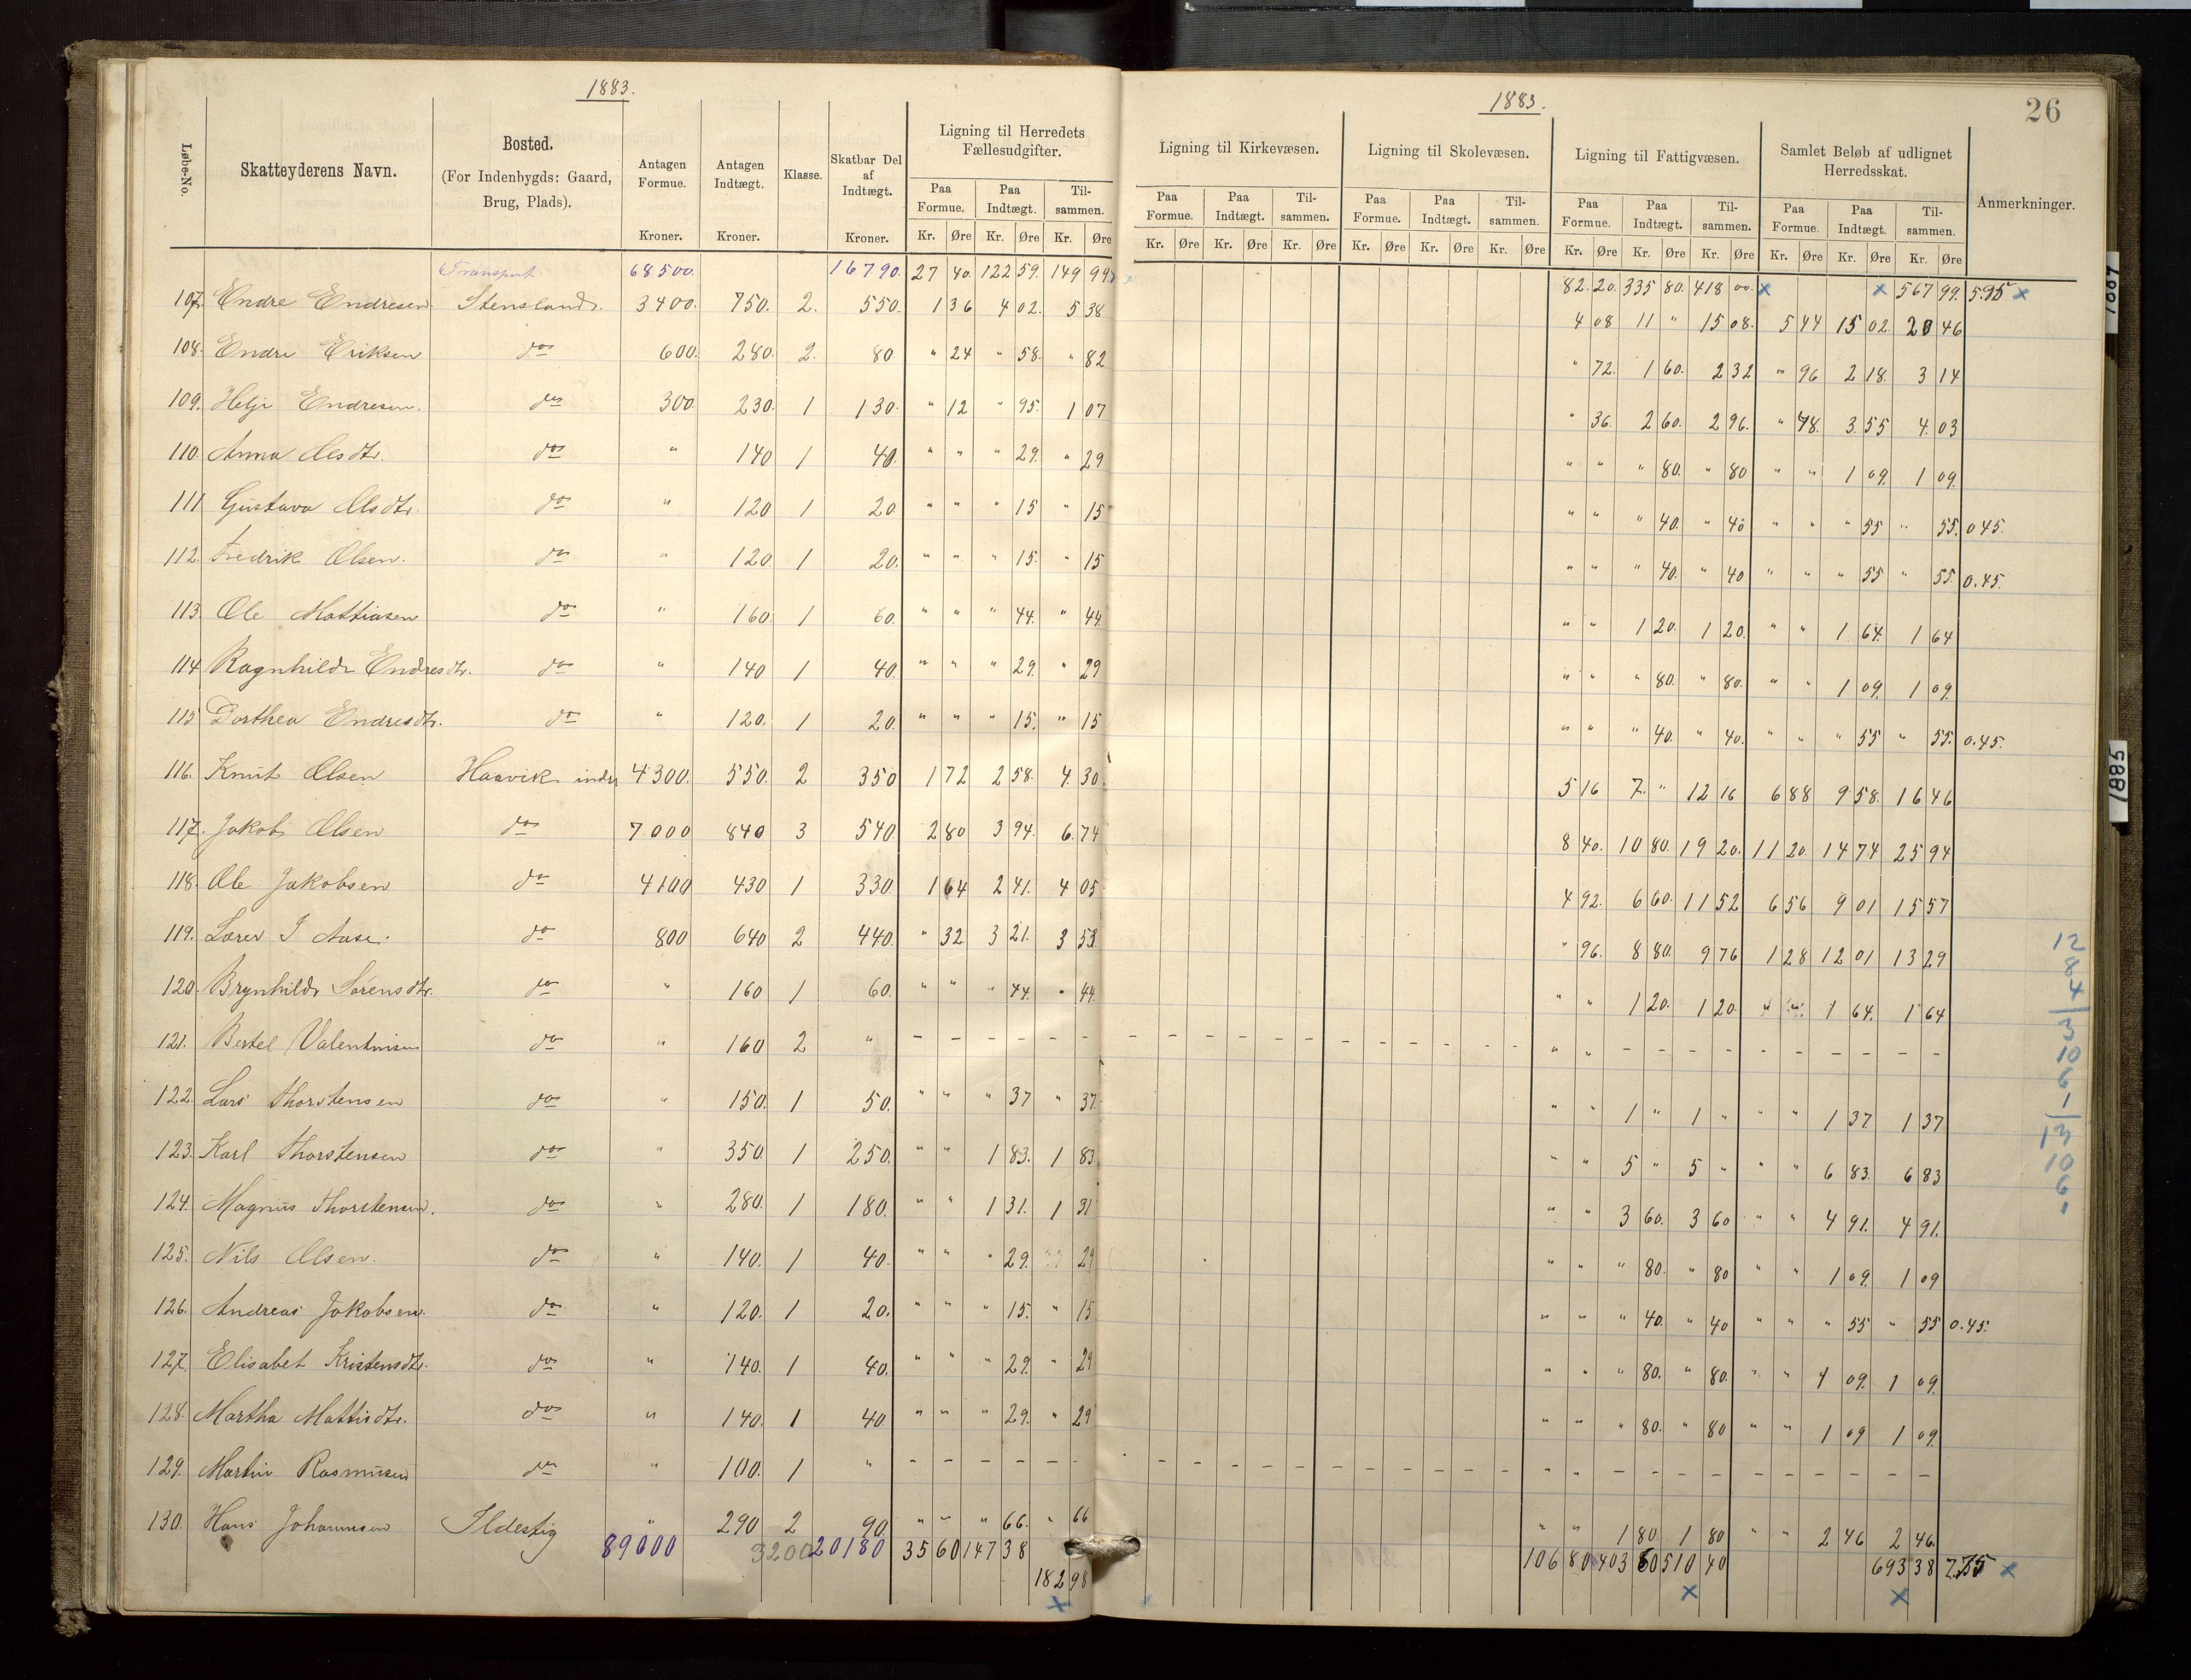 1883.
1883.
26
Løbe-No. Skatteyderens Navn. Bosted. (For Indenbygds: Gaard, Brug, Plads). Antagen Formue. Kroner. Antagen Indtægt. Kroner. Klasse. Skatbar Del af Indtægt. Kroner. Ligning til Herredets Fællesudgifter. Paa Formue. Kr. Øre Paa Indtægt. Kr. Øre Tilsammen. Kr. Øre Ligning til Kirkevæsen. Paa Formue. Kr. Øre Paa Indtægt. Kr. Øre Tilsammen. Kr. Øre Ligning til Skolevæsen. Paa Formue. Kr. Øre Paa Indtægt. Kr. Øre Tilsammen. Kr. Øre Ligning til Fattigvæsen. Paa Formue. Kr. Øre Paa Indtægt. Kr. Øre Tilsammen. Kr. Øre Samlet Beløb af udlignet Herredsskat. Paa Formue. Kr. Øre Paa Indtægt. Kr. Øre Tilsammen. Kr. Øre Anmerkninger.
Transport 68500. 16790. 27 40. 122 59. 149 99. 82. 20. 335 80. 418 00. x x 567 99. 5.95 x
107. Endre Endresen Stensland. 3400. 750. 2. 550. 1 36 4 02. 5 38 4 08 11 " 15 08. 5 44 15 02 20 46
108. Endre Eriksen do 600. 280. 2. 80. " 24 " 58. " 82 " 72. 1 60. 2 32 " 96 2 18. 3 14
109. Helje Endresen. do 300. 230. 1 130. " 12 " 95. 1 07 " 36. 2 60. 2 96. " 48. 3. 55 4. 03
110. Anna Olsdtr. do " 140 1 40. " " " 29. " 29 " " " 80. " 80 " " 1 09. 1 09.
111 Gustava Olsdtr. do " 120 1 20. " " " 15 " 15 " " " 40. " 40 " " " 55 " 55. 0 45.
112. Fredrik Olsen. do " 120. 1 20. " " " 15. " 15 " " " 40. " 40 " " " 55 " 55. 0.45.
113. Ole Mattiasen do " 160. 1 60. " " " 44. " 44. " " 1 20. 1 20. " " 1 64. 1 64
114 Ragnhild Endresdtr. do " 140 1 40. " " " 29. " 29 " " " 80. " 80. " " 1 09. 1 09.
115 Dorthea Endresdtr. do " 120. 1 20. " " " 15. " 15 " " " 40. " 40. " " " 55 " 55. 0.45.
116. Knut Olsen Haavik indre 4300. 550. 2 350 1 72 2 58. 4. 30. 5 16 7. " 12 16 6 88 9 58. 16 46
117. Jakob Olsen do 7000 840 3 540. 2 80 3 94. 6. 74 8 40. 10 80. 19 20. 11 20. 14 74 25 94
118. Ole Jakobsen do 4100 430 1 330. 1 64 2 41. 4 05 4 92. 6 60. 11 52 6 56 9 01 15 57
119. Lærer J Aase. do 800 640 2 440. " 32 3 21. 3 53 " 96. 8 80. 9 76 1 28 12 01 13 29
120. Brynhild Sørensdtr. do " 160 1 60. " " " 44. " 44. " " 1 20. 1 20. " " 1 64. 1 64
121. Bertel Valentinsen do " 160 2 " - - - - - - - - - - - - - - - - - - " " - - - - - - - - - -
122. Lars Thorstensen do " 150. 1 50. " " " 37 " 37. " " 1 " 1 " " " 1 37. 1 37
123. Karl Thorstensen do " 350. 1 250. " " 1 83. 1 83. " " 5 " 5 " " " 6 83. 6 83
124. Magnus Thorstensen. do " 280. 1 180. " " 1 31. 1 31 " " 3 60. 3 60 " " 4 91. 4 91.
125. Nils Olsen. do " 140. 1 40. " " " 29. 29 " " " 80. " 80 " " 1 09. 1 09
126. Andreas Jakobsen. do " 120. 1 20. " " " 15. " 15 " " " 40. " 40 " " " 55 " 55 0.45.
127. Elisabet Kristensdtr. do " 140. 1 40. " " " 29. " 29 " " " 80. " 80. " " 1 09. 1 09.
128. Martha Mattisdtr. do " 140. 1 40 " " " 29. " 29 " " " 80. " 80 " " 1 09 1 09.
129. Martin Rasmusen do " 100. 1 " - - - - - - - - - - - - - - - - - - " " - - - - - - - - - -
130. Hans Johannesen Ildestig " 290 2 90. " " " 66. " 66 " " 1 80. 1 80 " " 2 46 2 46.
89000 3200 20180 35 60 147 38 106 80 403 60 510 40 693 38 7.75 x
182 98
x x x
1885